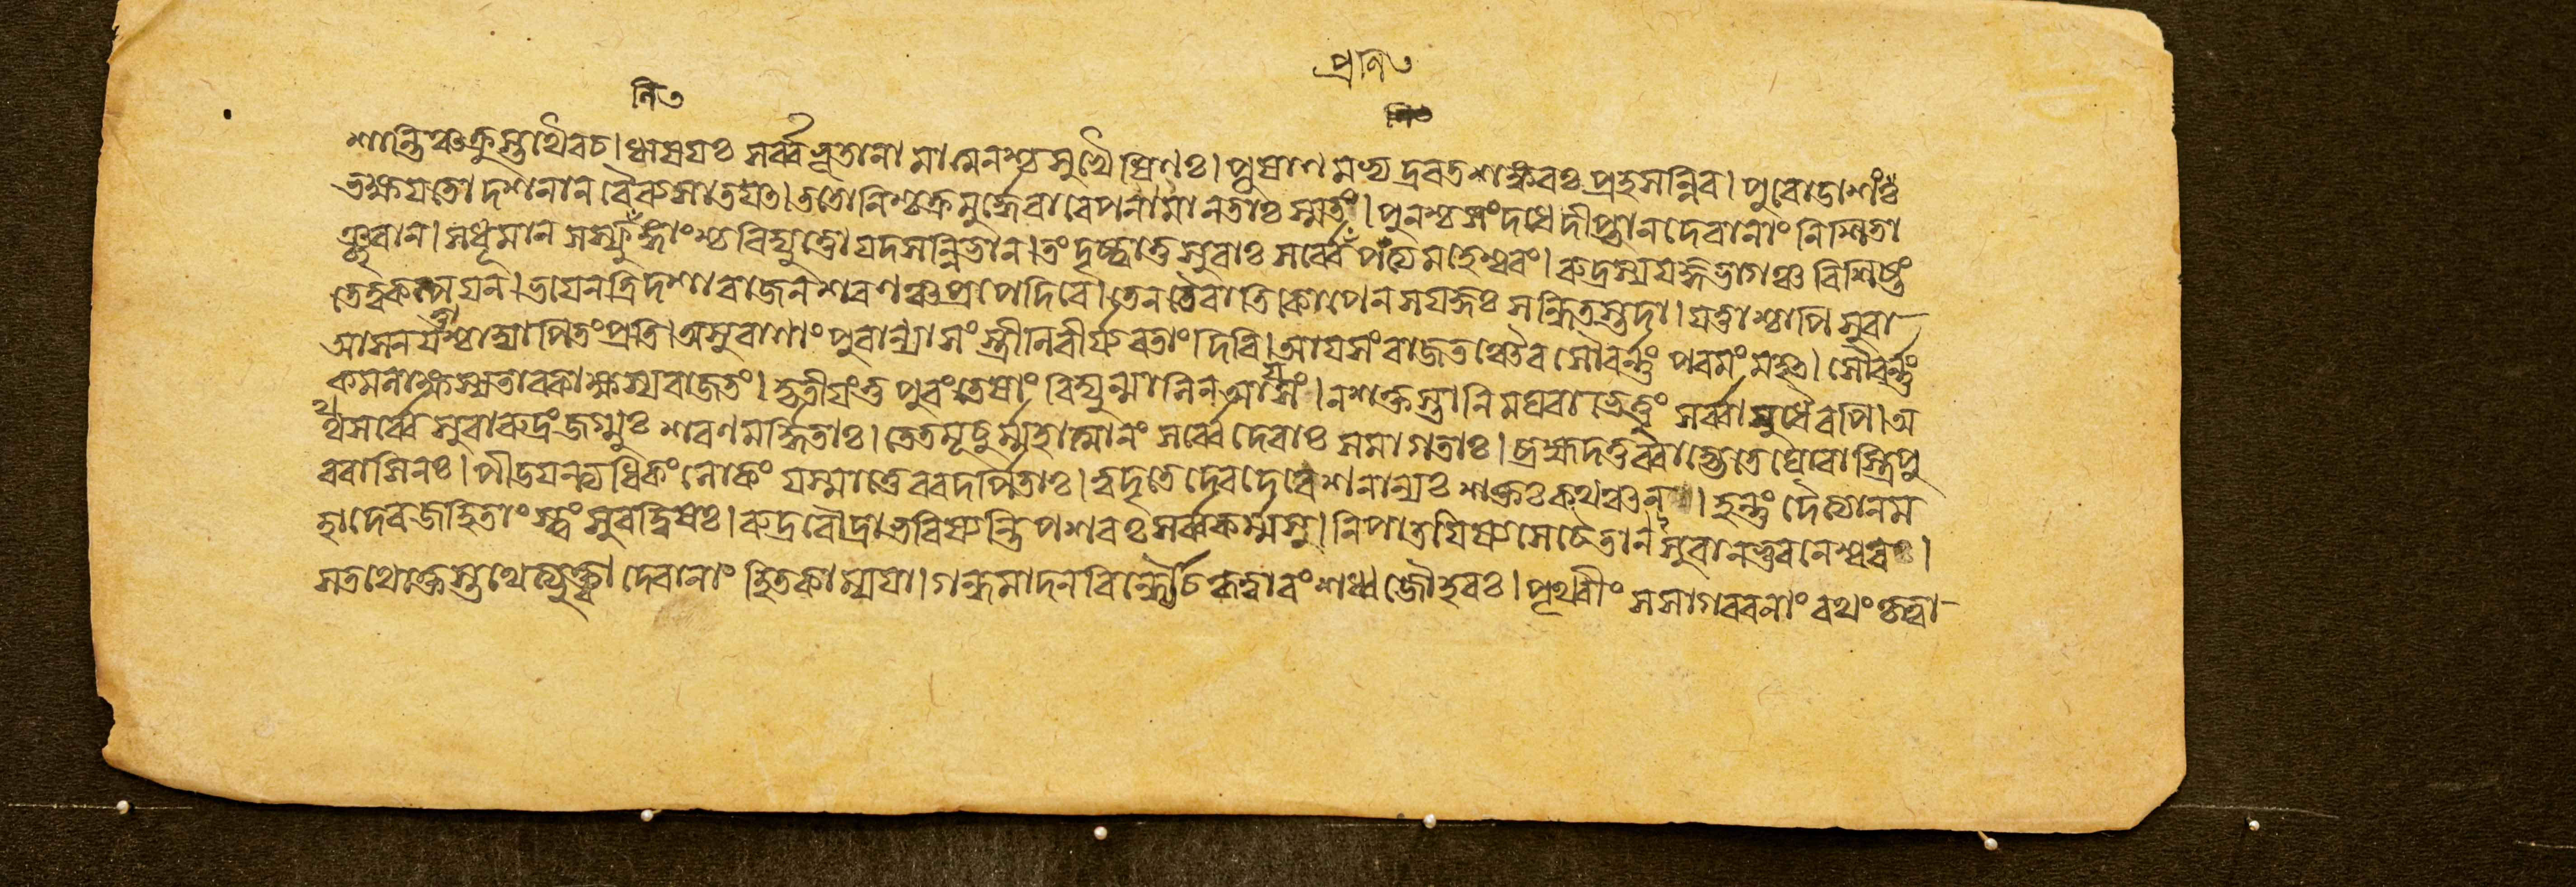 প্রণি৩
নি৩
শান্তিঞ্চক্রুস্তথৈবচ। ঋষয়ঃ সর্ব্বভূতানামাত্মনশ্চসুখৈষিণঃ। পূষাণমভ্যদ্রবতশঙ্করঃ প্রহসন্নিব। পুরোডাশং
ভক্ষয়তোদশনানবৈব্যশাতয়ৎ। ততোনিশ্চক্রমুর্দ্দেবাবেপমানানতাঃ স্মতং। পুনশ্চসংদধেদীপ্তানদেবানাংনিশিতা
ঞ্ছরান। সধূমানসস্ফুলিঙ্গাংশ্চবিদ্যুত্তোয়দসন্নিভান। তংদৃষ্ট্বাতুসুরাঃ সর্ব্বেপত্যমহেশ্বরং। রুদ্রস্যযজ্ঞভাগঞ্চবিশিষ্টং
তেত্বকল্পয়ন। ভয়েনত্রিদশারাজেনশরণঞ্চপ্রপেদিরে। তেনচৈবাতিকোপেনসযজ্ঞঃ সন্ধিতস্তদা। যত্তাশ্চাপিসুরা-
আসনযত্তাশ্চাদ্যাপিতংপ্রতি। অসুরাণাংপুরান্যাসংস্ত্রীনিবীর্য্যবতাংদিবি। আয়সংরাজতঞ্চৈবসৌবর্ন্নংপরমংমহৎ। সৌবর্ন্নং
কমলাক্ষস্যতারকাক্ষস্যরাজতং। তৃতীয়ংতুপুরংতেষাংবিদ্যুন্মালিনআয়সং। নশক্তস্তানিমঘবাভেত্তুংসর্ব্বায়ুধৈরপি। অ
থসর্ব্বেসুরারুদ্রংজগ্মুঃ শরণমর্দ্দিতাঃ। তেতমূচুর্ম্মহাত্মানংসর্ব্বেদেবাঃ সমাগতাঃ। ব্রহ্মদত্তবরাহ্যেতেঘোরাস্ত্রিপু
রবাসিনঃ। পীডয়ন্ত্যধিকংলোকংযস্মাত্তেবরদর্পিতাঃ। ত্বদৃতেদেবদেবেশনান্যঃ শক্তঃকথঞ্চন। হন্তুংদৈত্যানম
হাদেবজহিতাংস্ত্বংসুরদ্বিষঃ। রুদ্ররৌদ্রাভবিষ্যন্তিপশবঃসর্ব্বকর্ম্মসু। নিপাতয়িষ্যসেচৈতানসুরানভুবনেশ্বরঃ।
সতথোক্তস্তথেত্যুক্ত্বাদেবানাংহিতকাম্যয়া। গন্ধমাদনবিন্ধ্যৌচকৃত্বাবংশধ্বজৌহরঃ। পৃথবীংসসাগরবনাংরথংকৃত্বা-